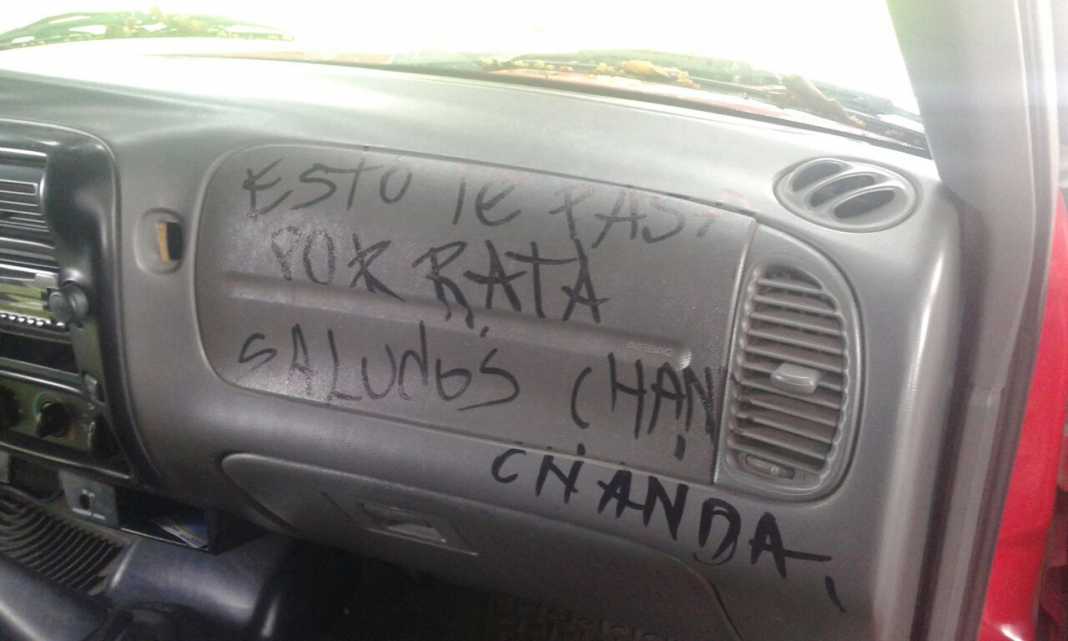 ESTO TE PASA
POR RATA
SALUdOS CHAN
CHANDA.